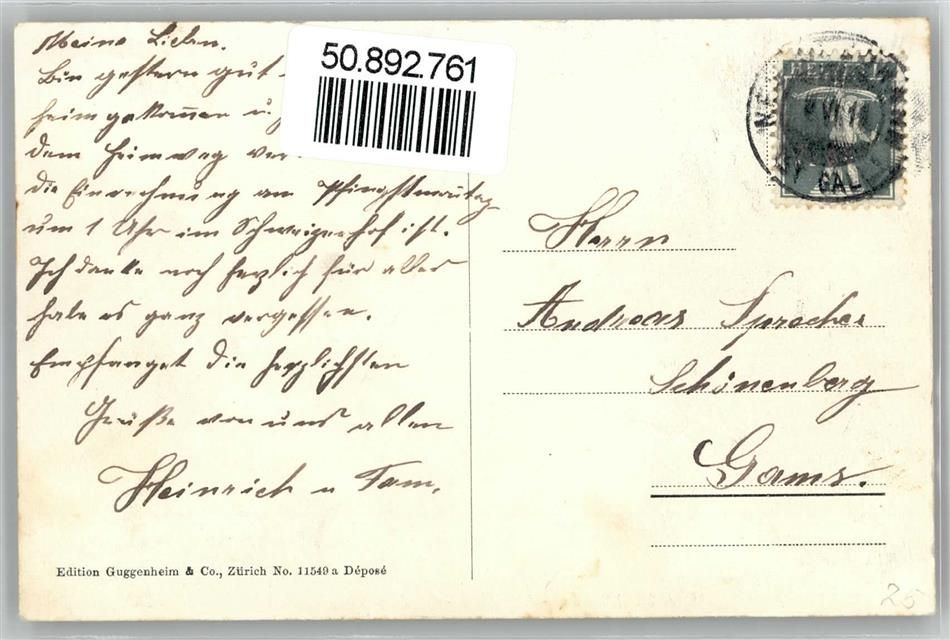 Meine Lieben.
Bin gestern gut
heimgekommen u.
dem Heimweg
die Einreichung am Pfingstmontag
um 1 Uhr im Schweizerhof ist.
Ich danke noch herzlich für alles
habe es ganz vergessen.
Empfanget die herzlichsten
Grüße von uns allen
Heinrich u Fam.
Edition Guggenheim & Co., Zürich No. 11549 a Déposé
50.892.761
HELVETIA
GAL
Herrn
Andreas Sprecher
Schönenberg
Gams.
25